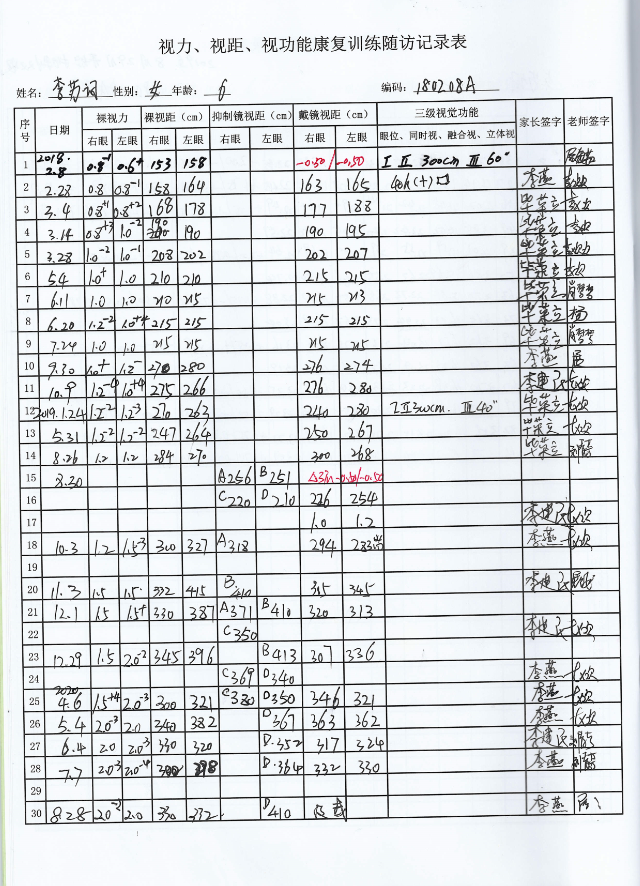 视力、视距、视功能康复训练随访记录表
姓名: 李苏词 性别: 女 年龄: 6 编码: 180208A
序号 日期 裸视力 裸视距(cm) 抑制镜视距(cm) 戴镜视距(cm) 三级视觉功能 家长签字 老师签字
右眼 左眼 右眼 左眼 右眼 左眼 右眼 左眼 眼位、同时视、融合视、立体视
1 2018.2.8 0.8⁻¹ 0.6⁺ 153 158 -0.50/-0.50 Ⅰ Ⅱ 300cm Ⅲ 60"
2 2.28 0.8 0.8⁻¹ 158 164 163 165 李燕
3 3.4 0.8⁺¹ 0.8⁺² 168 178 177 188 毕荣立
4 3.14 0.8⁺³ 1.0⁻² 190 190 190 195 毕荣立
5 3.28 1.0⁻² 1.0⁻¹ 208 202 202 207 毕荣立
6 5.4 1.0⁺ 1.0 210 210 215 215 毕荣立
7 6.11 1.0 1.0 210 215 215 213 毕荣立
8 6.20 1.2⁻² 1.0⁺⁴ 215 215 215 215 毕荣立 杨
9 7.24 1.0 1.0 215 215 215 215 毕荣立
10 9.30 1.0⁺ 1.2⁻ 270 280 276 274 李燕 居
11 10.9 1.2⁻⁴ 1.0⁺⁴ 275 266 276 280 李建民
12 2019.1.24 1.2⁻² 1.2⁻³ 270 263 240 280 Ⅰ Ⅱ 300cm. Ⅲ 40" 毕荣立
13 5.31 1.2⁻² 1.2⁻² 247 264 250 267 毕荣立
14 8.26 1.2 1.2 284 270 300 268 毕荣立
15 8.30 A256 B251 -0.50/-0.50
16 C220 D210 226 254
17 1.0 1.2 李建民
18 10.3 1.2 1.5⁻³ 300 327 A318 294 283 李燕
19
20 11.3 1.5 1.5 332 415 B.410 315 345 李建民
21 12.1 1.5 1.5⁺ 330 387 A371 B410 320 313
22 C350 李建民
23 12.29 1.5 2.0⁻² 345 396 B413 307 336
24 C369 D340 李燕
25 2020.4.6 1.5⁺⁴ 2.0⁻³ 300 321 C380 D350 346 321 李燕
26 5.4 2.0⁻³ 2.0 340 382 D367 363 362 李燕
27 6.4 2.0 2.0⁻³ 330 320 D.352 317 324 李建民
28 7.7 2.0⁻³ 2.0⁻⁴ 300 298 D.364 332 330 李燕
29
30 8.28 2.0⁻² 2.0 330 332 D410 李燕 居